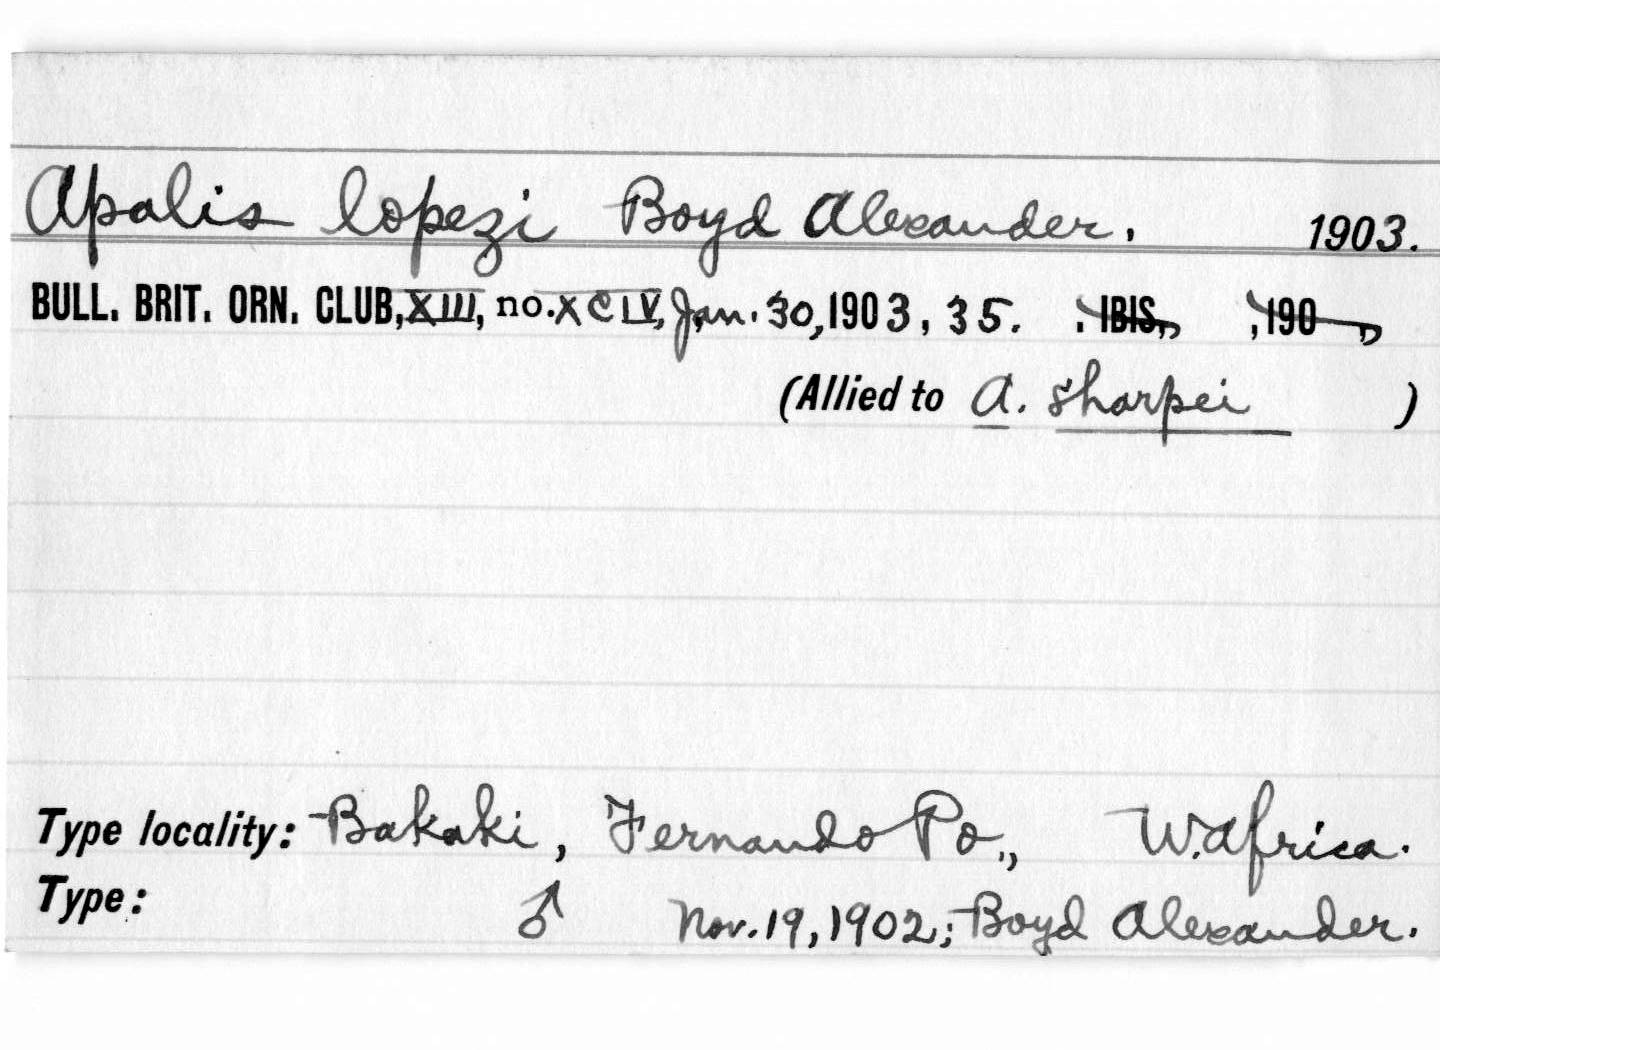 Apalis lopezi Boyd Alexander. 1903.
BULL. BRIT. ORN. CLUB, XIII, no. XCIV, Jan. 30, 1903, 35. , IBIS, , 190 ,
(Allied to A. sharpei )
Type locality: Bakaki, Fernando Po., W. Africa.
Type: ♂ Nov. 19, 1902; Boyd Alexander.